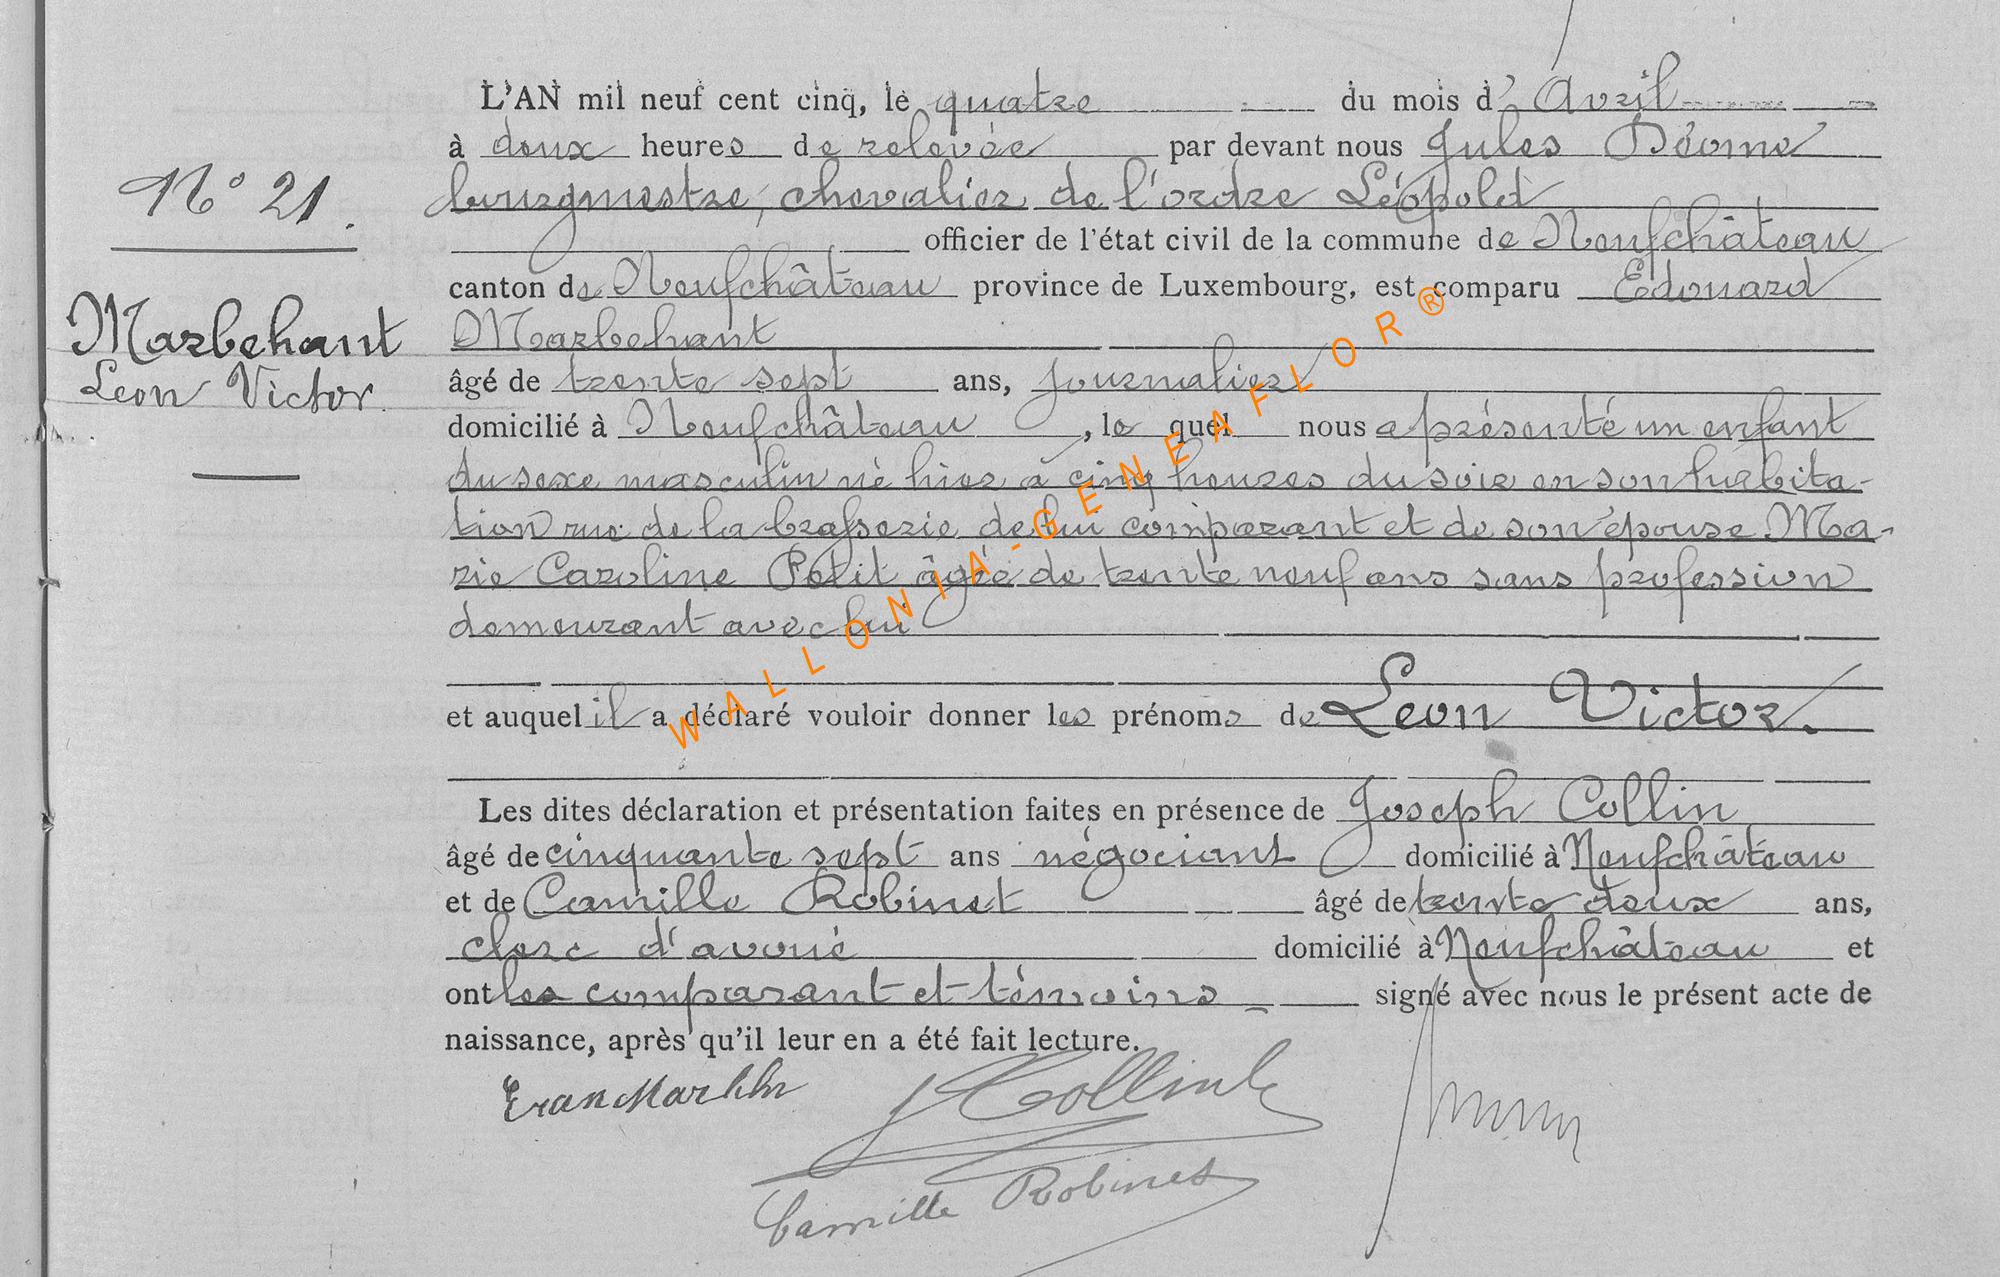 L'AN mil neuf cent cinq, le quatre du mois d'Avril
à deux heures de relevée par devant nous Jules
N° 21.
bourgmestre, chevalier de l'ordre Léopold
officier de l'état civil de la commune de Neufchâteau
canton de Neufchâteau province de Luxembourg, est comparu Edouard
Marbehant
Marbehant
Leon Victor.
âgé de trente sept ans, journalier
domicilié à Neufchâteau, le quel nous a présenté un enfant
du sexe masculin né hier à cinq heures du soir en son habita-
tion rue de la brasserie, de lui comparant et de son épouse Ma-
rie Caroline Petit âgée de trente neuf ans sans profession
demeurant avec lui
et auquel il a déclaré vouloir donner les prénoms de Leon Victor.
Les dites déclaration et présentation faites en présence de Joseph Collin
âgé de cinquante sept ans négociant domicilié à Neufchâteau
et de Camille Robinet âgé de trente deux ans,
clerc d'avoué domicilié à Neufchâteau et
ont les comparant et témoins signé avec nous le présent acte de
naissance, après qu'il leur en a été fait lecture.
Collin
Camille Robinet
WALLONIA-GENEAFLOR®